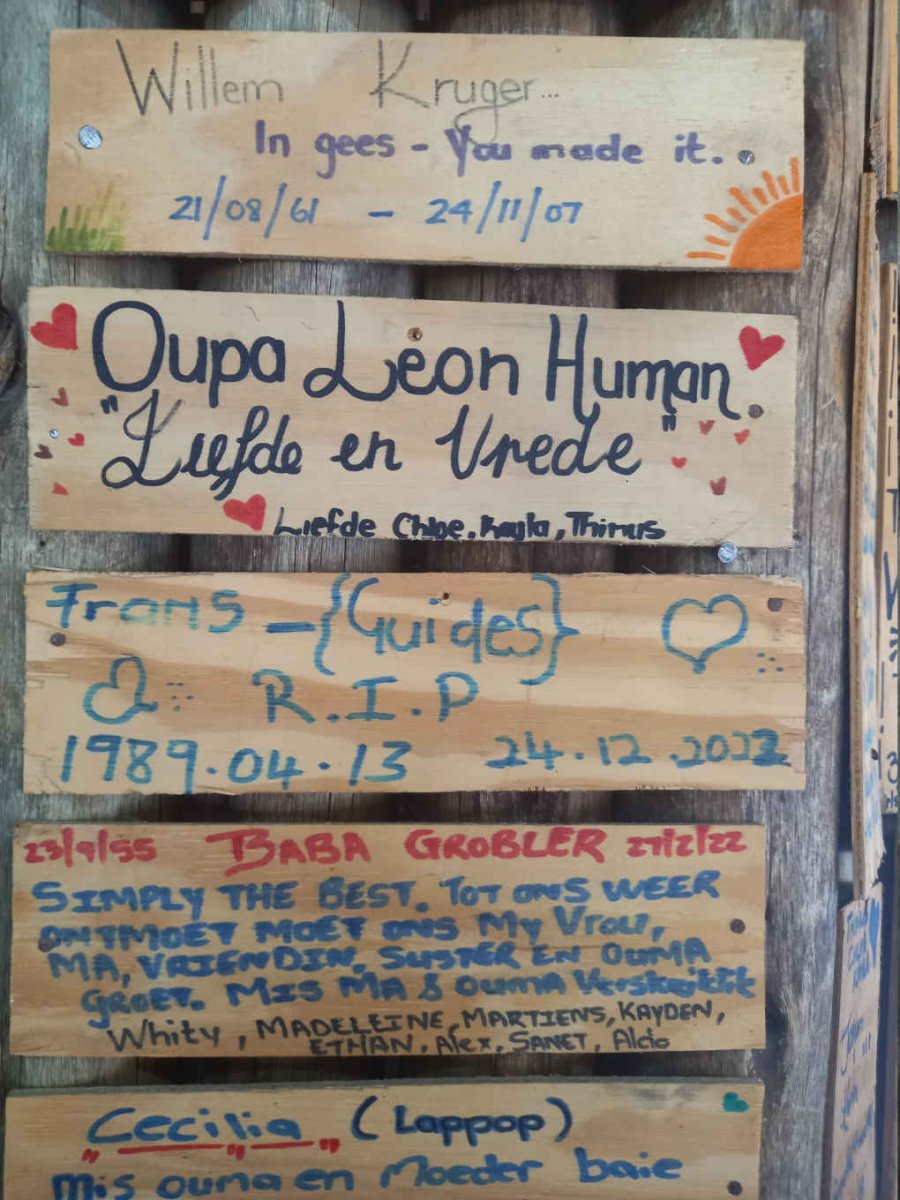 Willem Kruger...
In gees - You made it.
21/08/61 - 24/11/07
Oupa Leon Human
"Liefde en Vrede"
Liefde Chloe, Kayla, Thinus
Frans - {Guides}
R.I.P
1989.04.13 24.12.2022
23/9/55 BABA GROBLER 27/2/22
SIMPLY THE BEST. TOT ONS WEER
ONTMOET MOET ONS MY VROU,
MA, VRIENDIN, SUSTER EN OUMA
GROET. MIS MA & OUMA Verskriklik
Whity, MADELEINE, MARTIENS, KAYDEN,
ETHAN, Alex, SANET, Aldo
Cecilia (Lappop)
Mis ouma en Moeder baie